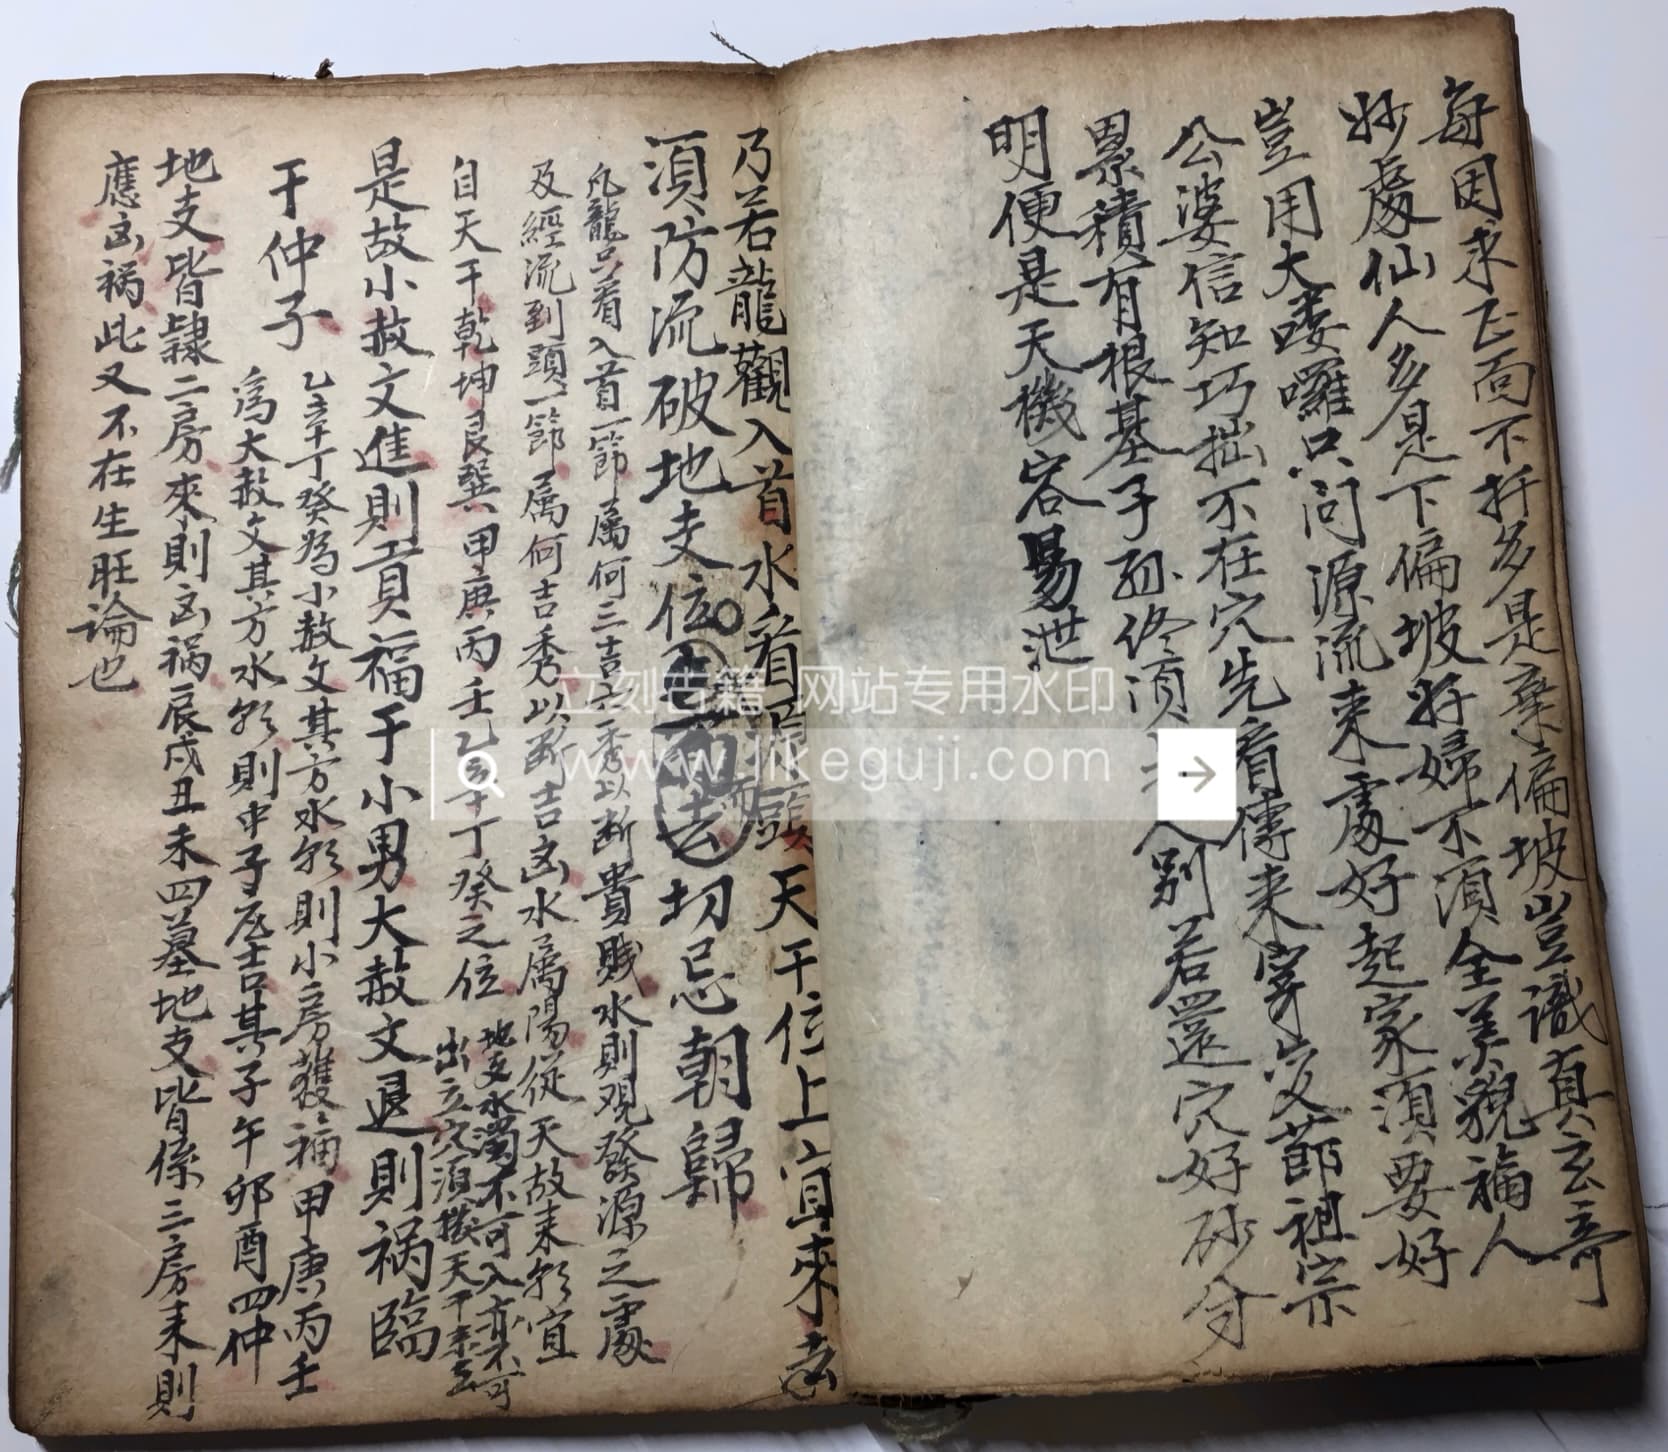 每因求正面不扦多是棄偏坡豈識真玄奇
妙處仙人多是下偏坡好婦不須全美貌福人
豈用大嘍囉只问源流来處好起家須要好
公婆信知巧拙不在穴先看傳来寄变節祖宗
累積有根基子孙终須人別若還穴好砂分
明便是天機容易泄
乃若龍觀入首水看源頭天干位上宜來去
須防流破地支位去切忌朝歸
凡龍只看入首一節屬何三吉六秀以断貴贱水則观發源之處
及經流到頭一節屬何吉秀以断吉凶水屬陽從天故来水宜
自天干乾坤艮巽甲庚丙壬乙辛丁癸之位
地支水濁不可入亦不可
出立穴須撥天干来去
是故小赦文進則貢福于小男大赦文退則祸臨
于仲子
乙辛丁癸為小赦文其方水朝則小房獲福甲庚丙壬
為大赦文其方水朝則中子应吉其子午卯酉四仲
地支皆隸二房來則凶祸辰戌丑未四墓地支皆係三房来則
應凶祸此又不在生旺論也
立刻古籍 网站专用水印
www.likeguji.com